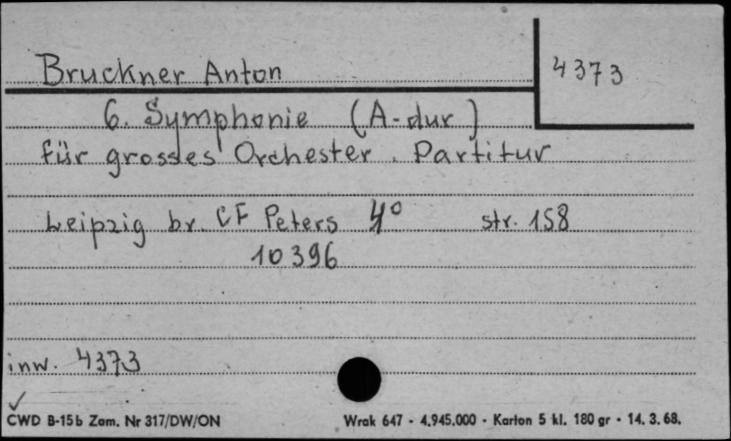 Bruckner Anton
4373
6. Symphonie (A-dur)
für grosses Orchester. Partitur
Leipzig br. CF Peters 4° str. 158
10396
inw. 4373
✓
CWD B-15b Zam. Nr 317/DW/ON Wrak 647 - 4.945.000 - Karton 5 kl. 180 gr - 14. 3. 68.